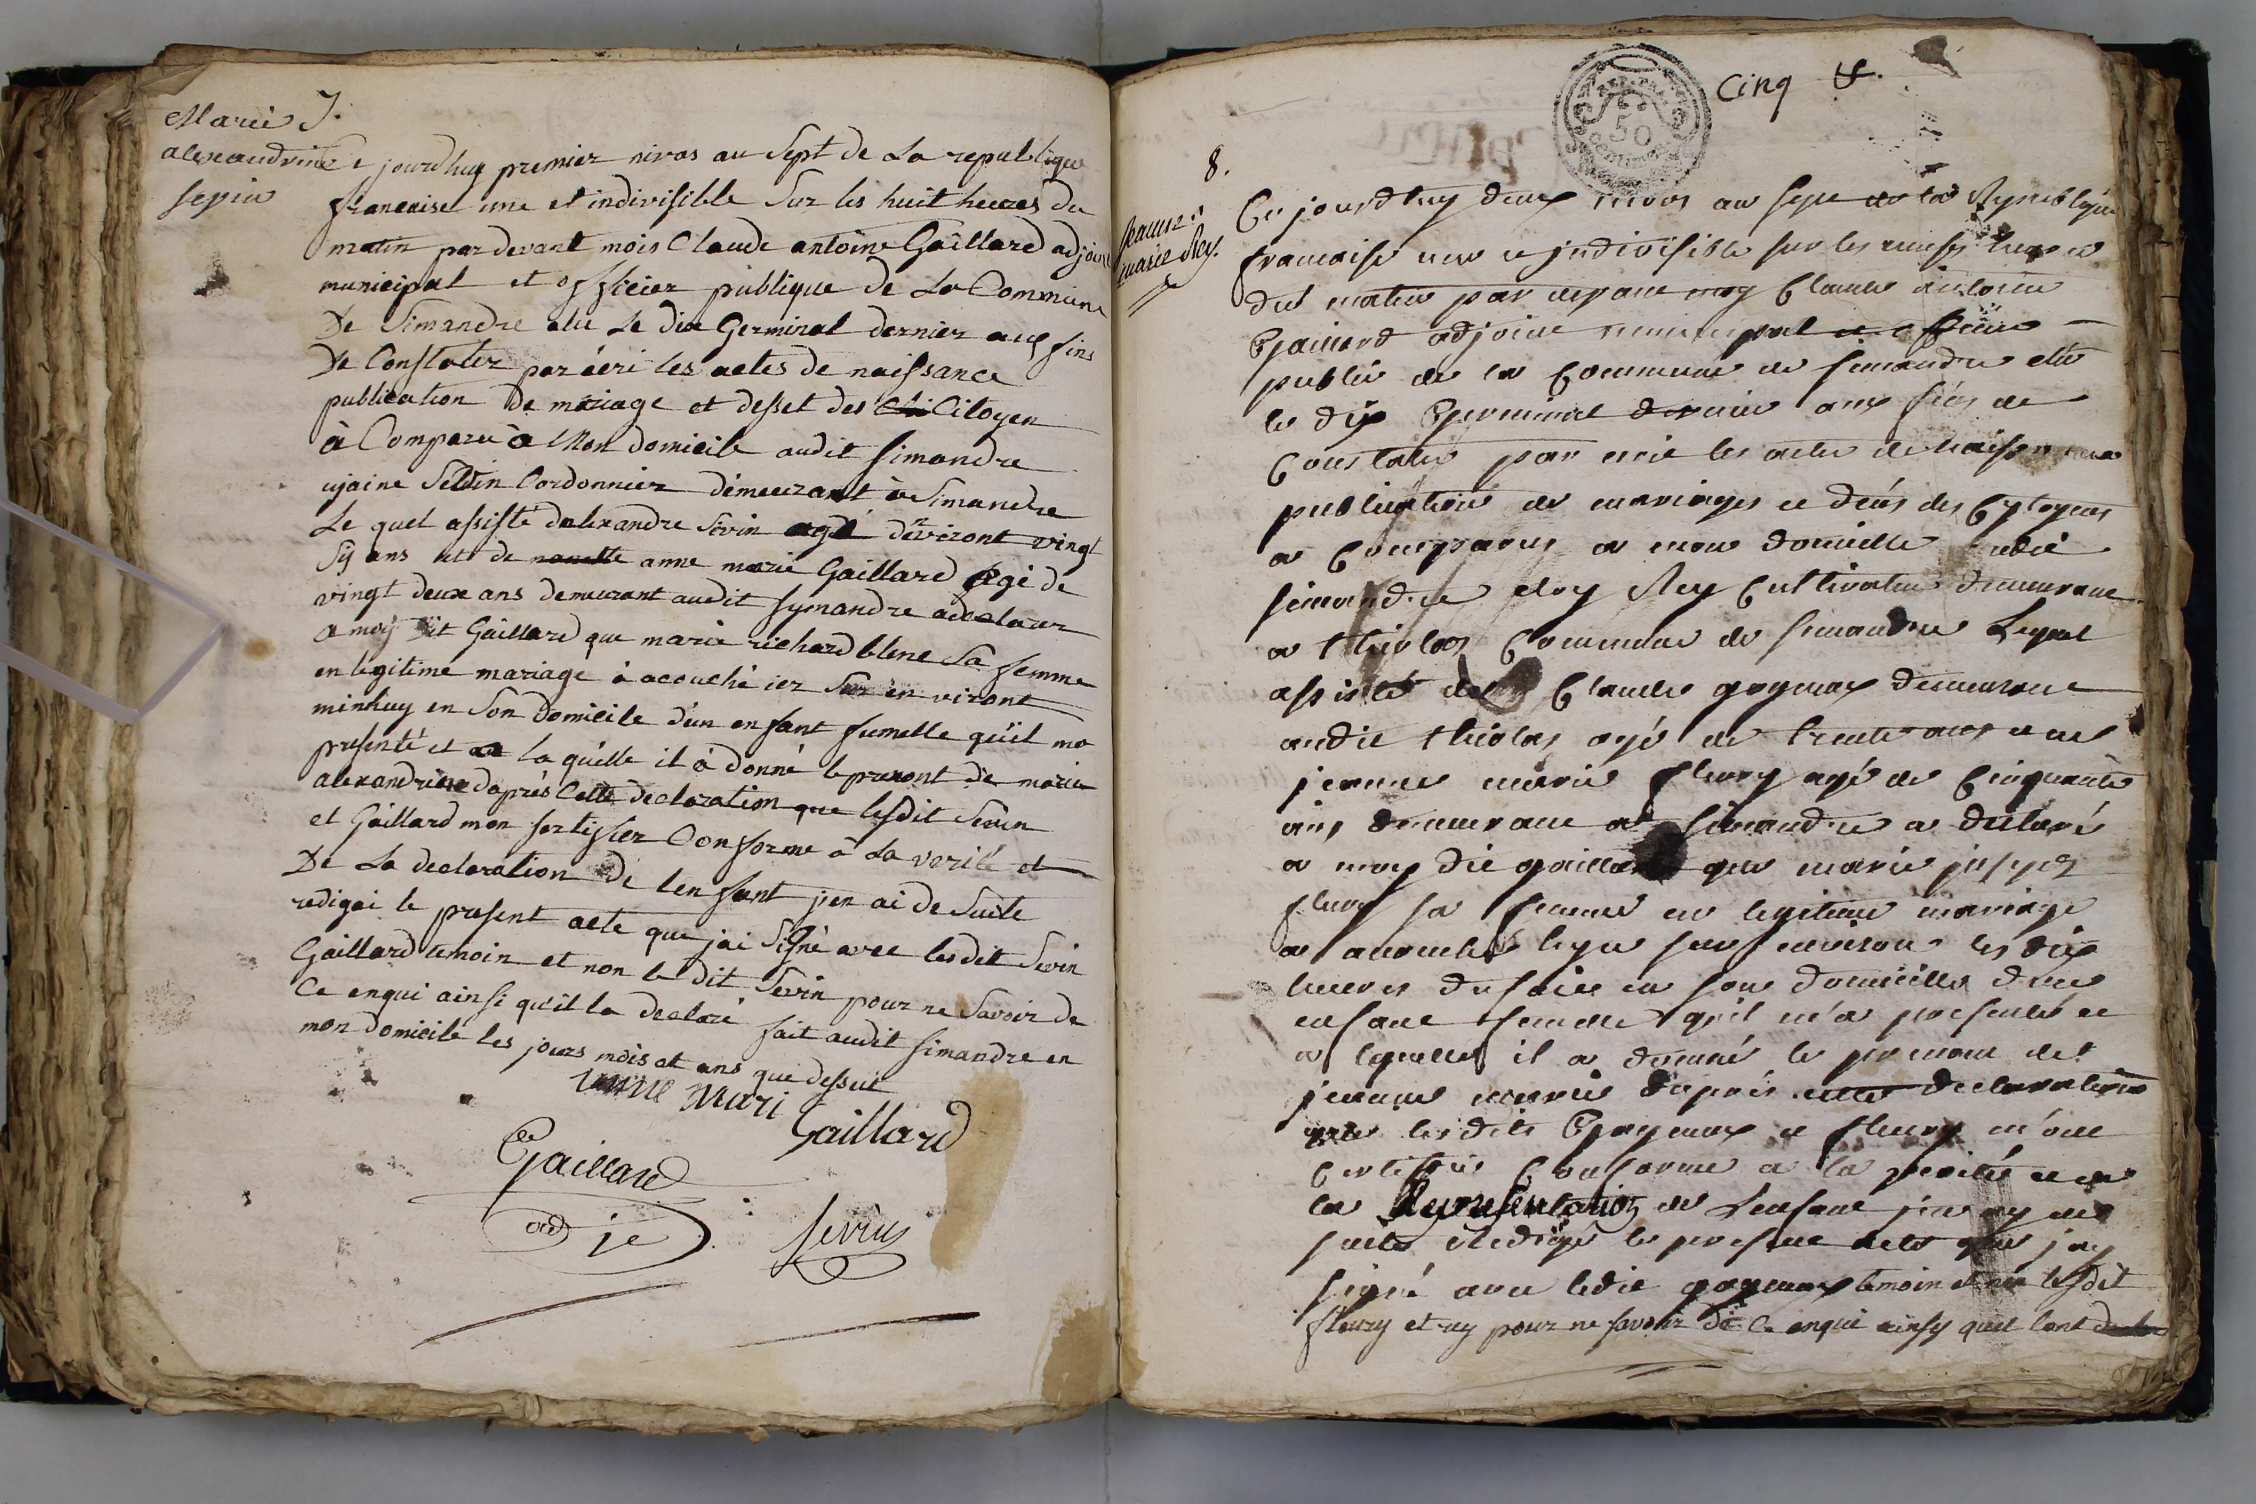 Marie 7.
alexandrine
sevin
Ce jourdhuy premier nivos an Sept de La republique
francaise une et indivisible Sur les huit heures du
matin par devant mois Claude antoine Gaillard adjoint
municipal et officier publique de La Commune
De Simandre elu Le dix Germinal dernier aux fins
De Constater par écri les actes de naissance
publication De mariage et desset des Citoyen
à Comparu à Mon domicile audit simandre
Cordonnier démeurant à Simandre
Le quel assisté dalexandre Sevin agé dénviront vingt
sij ans et de anne marie Gaillard agé de
vingt deux ans demeurant audit symandre a
a moij dit Gaillard que marie richard blene Sa femme
en légitime mariage à acouché ier Sur en viront
minhuy en Son domicile d'un enfant fumelle quil ma
presenté et a la quelle il à donné le prenont de marie
alexandrine daprès Cette declaration que lesdit Sevin
et Gaillard mon sertifier Conforme à La verité et
De La declaration de lenfant j'en ai de Suite
redigai le present acte que jai Signé avec lesdit Sevin
Gaillard temoin et non le dit Sevin pour ne Savoir de
Ce enqui ainsi qu'il la declaré fait audit simandre en
mon domicile les jours mois et ans que dessuit
anne mari
Gaillard
Gaillard
adje
sevin
50
centimes
Cinq
8.
jeanne
marie Rey.
Ce jourdhuy deux nivos an sept de la Republique
francaise une et indivisible sur les heures
du matin par devant moy Claude antoine
Gaillard adjoint municipal et officier
public de la Commune de simandre elu
le dix Germinal dernier aux fins de
Constater par ecrie les actes de naissance
publication de mariages et deces des Cytoyens
a Comparus a mon domicille audit
simandre eloy Rey Cultivateur demeurant
a thiolas Commune de simandre Lequel
assisté de Claude goyeux demeurant
audit thiolas agé de trente ans et de
jeanne marie fleury agé de Cinquante
ans demeurant a simandre a declaré
a moy dit gaillard que marie
fleury sa femme en legitime mariage
a acouché hyer sur environ les dix
heures du soire en son domicille dun
enfant femelle qu'il m'a presenté et
a laquelle il a donné le prenom de
jeanne marie daprés cette declaration
que lesdits Goyeux et fleury m'ont
Certifié Conforme a la verité et de
la Representation de Lenfant jen ay de
suite Redigé le present acte que jay
signé avec ledit goyeux temoin et non lesdit
fleury et rey pour ne savoir de Ce enqui ainsy quil lont